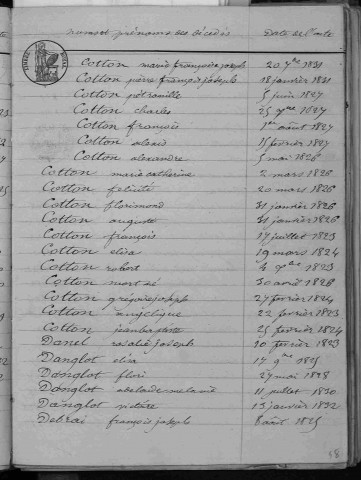 noms et prénoms des décédés Date de l'acte
Cotton marie françoise joseph 20 7bre 1831
Cotton pierre françois joseph 18 janvier 1831
Cotton pétronille 5 juin 1827
Cotton charles 25 9bre 1827
Cotton françois 1er août 1827
Cotton alexis 15 février 1827
Cotton alexandre 5 mai 1826
Cotton marie catherine 2 mars 1826
Cotton felicité 20 mars 1826
Cotton florimond 31 janvier 1826
Cotton auguste 31 janvier 1826
Cotton françois 17 juillet 1823
Cotton elisa 19 mars 1824
Cotton robert 1823
Cotton mort né 30 avril 1826
Cotton grégoire joseph 27 février 1824
Cotton angelique 22 février 1823
Cotton jean bte 25 février 1824
Danel rosalie joseph 20 février 1823
Danglot elisa 17 9bre 1825
Danglot flori 27 mai 1828
Danglot adelaide melanie 11 juillet 1830
Danglot 13 janvier 1832
Debrai françois joseph 8 août 1825
58